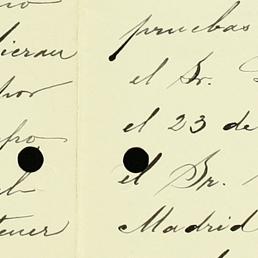 no
dieran
por
tener
pruebas
el Sr.
el 23 de
el Sr.
Madrid